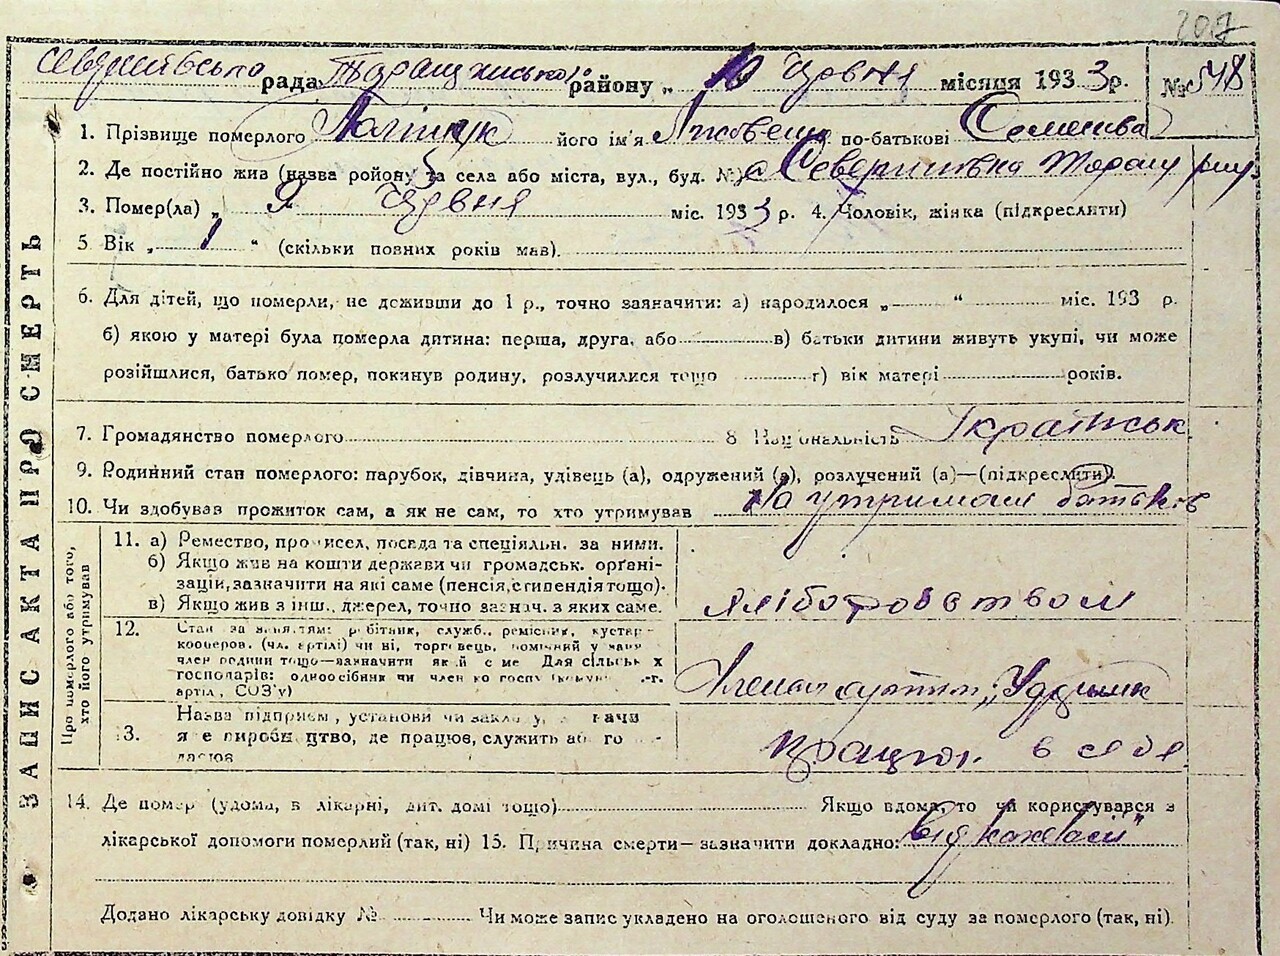 207
рада Таращанського району „ 10 Червня місяця 1933 р. № 548
1. Прізвище померлого Поліщук його ім'я по-батькові Семенива
2. Де постійно жив (назва ройону та села або міста, вул., буд. №) с Северинівка Таращ
3. Помер(ла) „ 9 Червня міс. 1933 р. 4. Чоловік, жінка (підкреслити)
5 Вік „ 1 “ (скільки повних років мав).
6. Для дітей, що померли, не доживши до 1 р., точно зазначити: а) народилося „ “ міс. 193 р.
б) якою у матері була померла дитина: перша, друга, або в) батьки дитини живуть укупі, чи може
розійшлися, батько помер, покинув родину, розлучилися тощо г) вік матері років.
7. Громадянство померлого 8 Національність Українськ
9. Родинний стан померлого: парубок, дівчина, удівець (а), одружений (а), розлучений (а)—(підкреслити).
10. Чи здобував прожиток сам, а як не сам, то хто утримував На утримані батьків
ЗАПИС АКТА ПРО СМЕРТЬ
Про померлого або того,
хто його утримував
11. а) Ремество, промисел, посада та спеціяльн. за ними.
б) Якщо жив на кошти держави чи громадськ. орґані-
зацій, зазначити на які саме (пенсія, стипендія тощо).
в) Якщо жив з інш. джерел, точно зазнач. з яких саме.
хліборобством
12. Стан за заняттям: робітник, служб., ремісник, кустар-
кооперов. (чл. артілі) чи ні, торговець, помічний у
член родини тощо—зазначити який саме Для сільськ х
господарів: одноосібник чи член
артіл , СОЗ'у)
Член артіли „Ударник
13. Назва підприєм , установи чи закладу,
виробництво, де працює, служить або
працює в себе
14. Де помер (удома, в лікарні, дит. домі тощо) Якщо вдома, то чи користувався з
лікарської допомоги померлий (так, ні) 15. Причина смерти— зазначити докладно: від
Додано лікарську довідку № Чи може запис укладено на оголошеного від суду за померлого (так, ні).